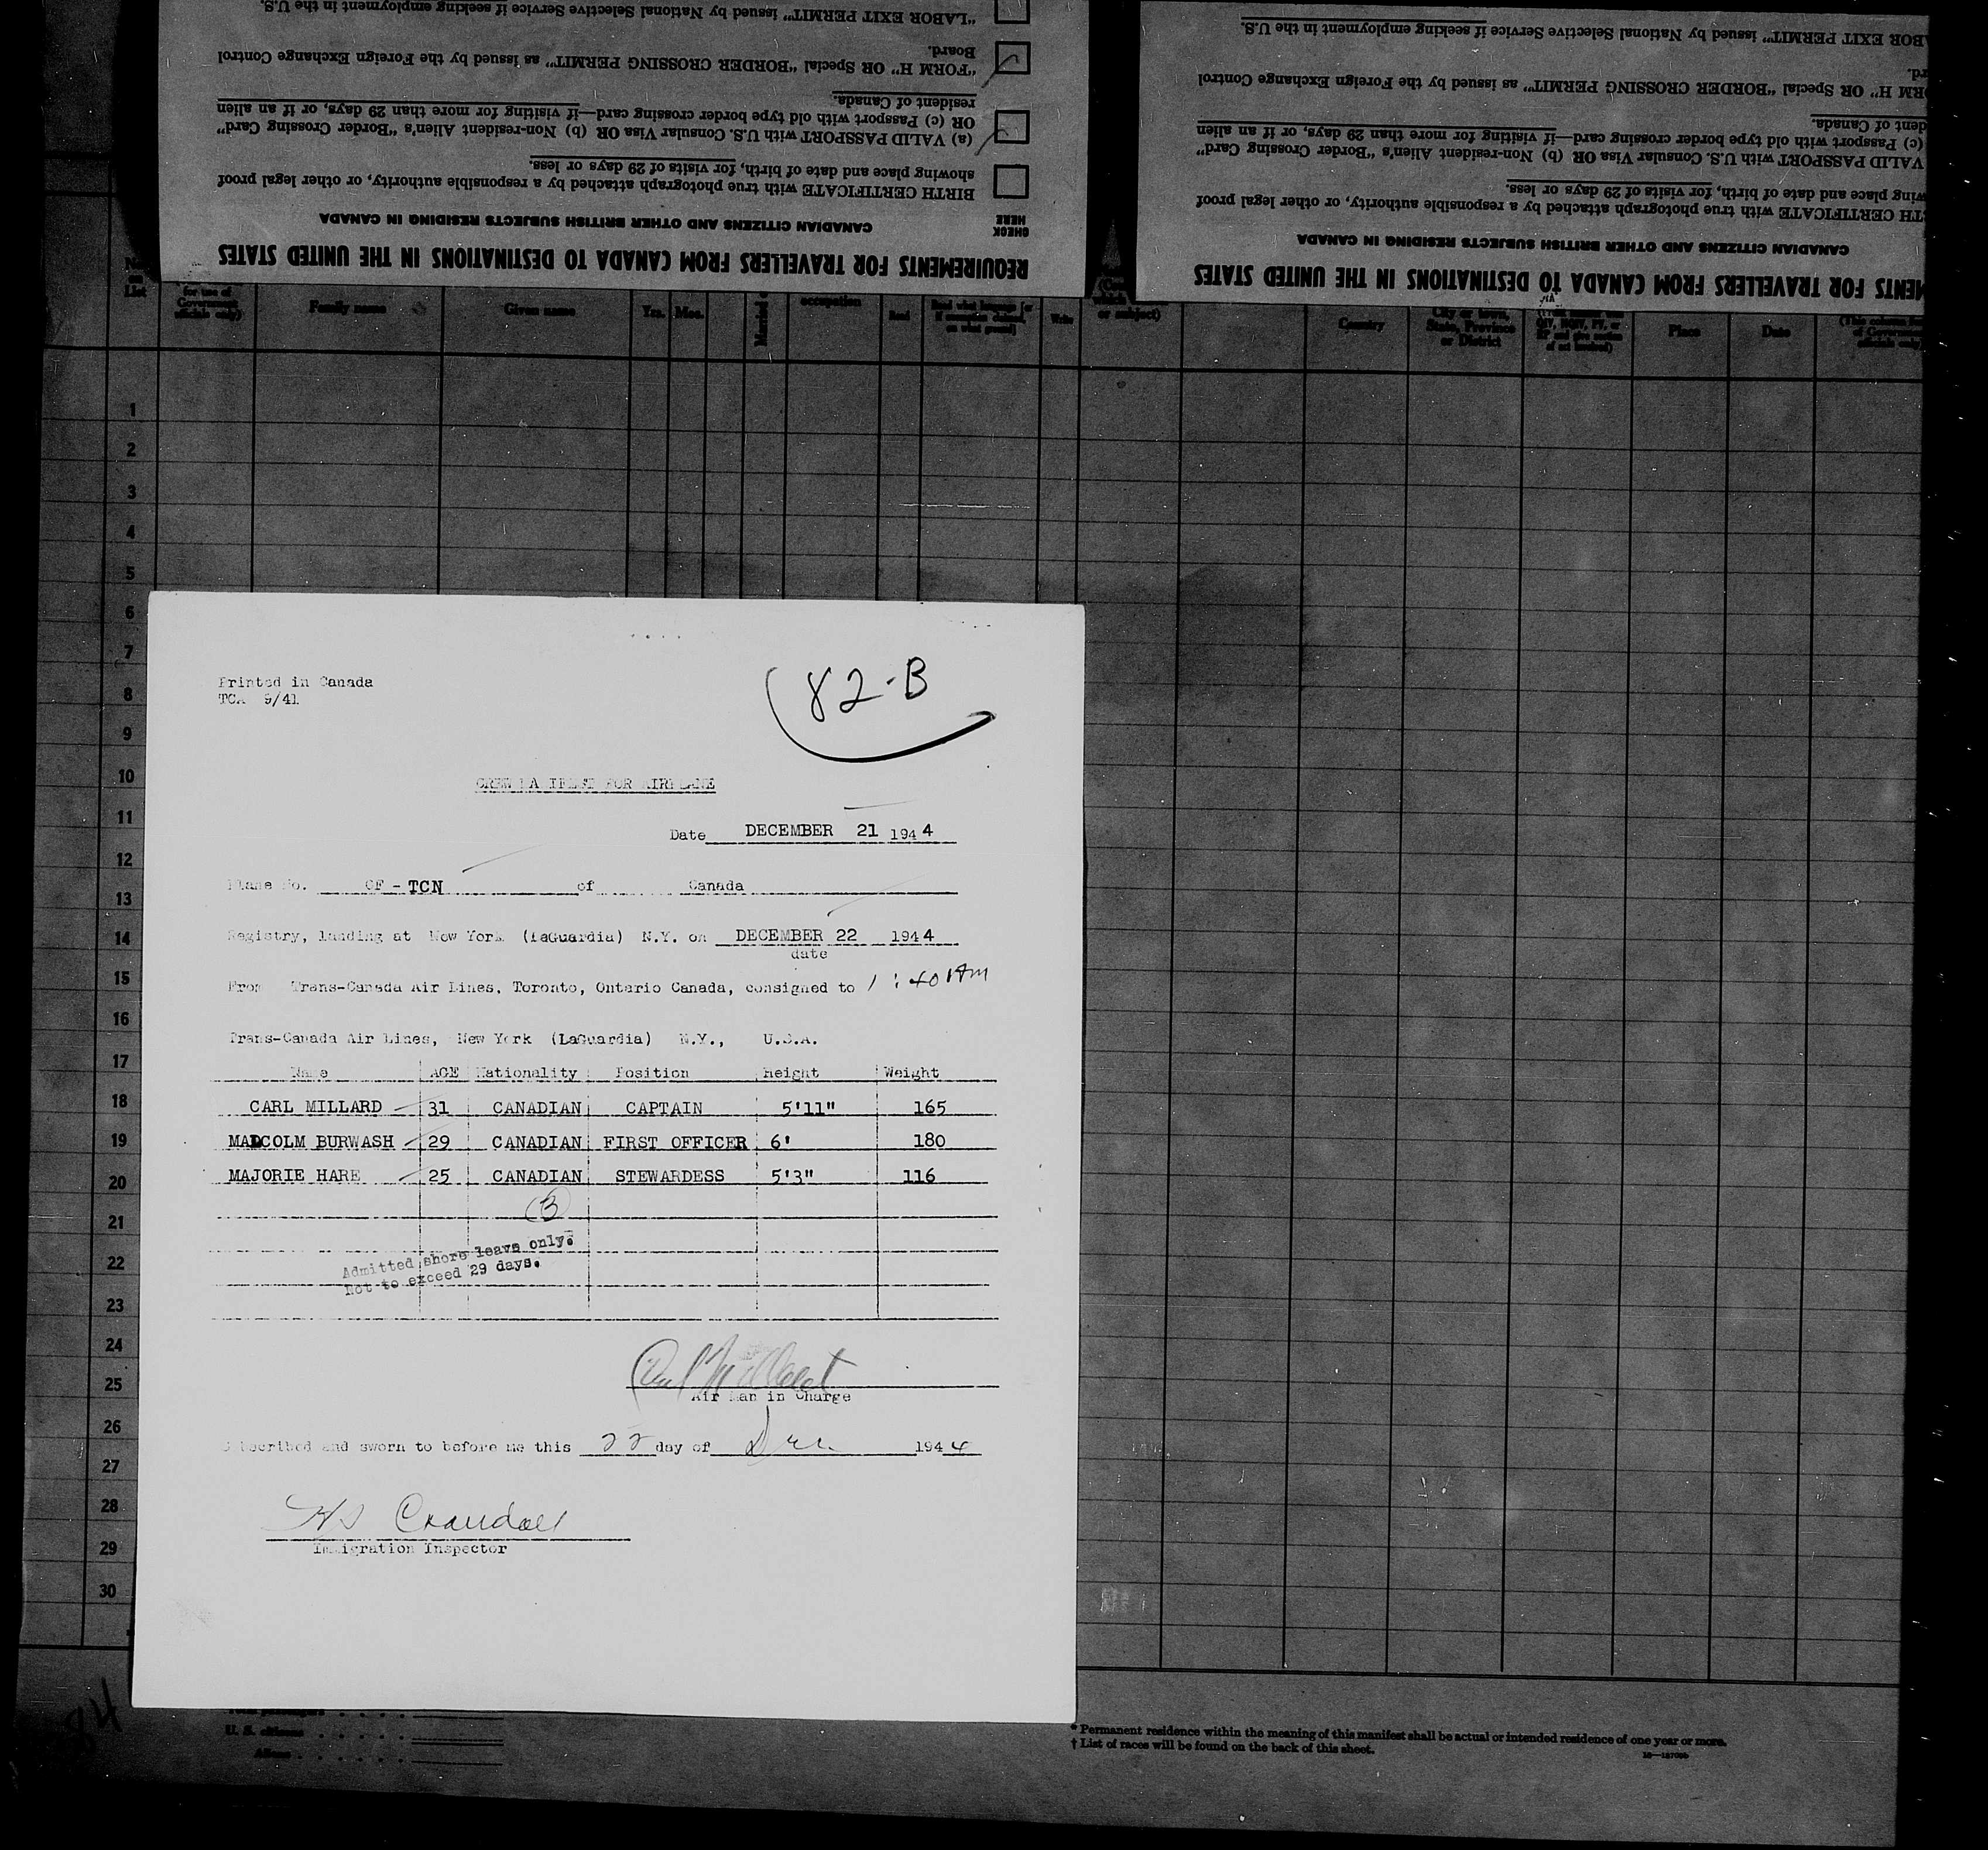 "LABOR EXIT PERMIT" issued by National Selective Service if seeking employment in the U.S.
"FORM H" OR Special "BORDER CROSSING PERMIT" as issued by the Foreign Exchange Control
Board.
(a) VALID PASSPORT with U.S. Consular Visa OR (b) Non-resident Alien's "Border Crossing Card"
OR (c) Passport with old type border crossing card—if visiting for more than 29 days, or if an alien
resident of Canada.
BIRTH CERTIFICATE with true photograph attached by a responsible authority, or other legal proof
showing place and date of birth, for visits of 29 days or less.
CHECK
HERE
CANADIAN CITIZENS AND OTHER BRITISH SUBJECTS RESIDING IN CANADA
REQUIREMENTS FOR TRAVELLERS FROM CANADA TO DESTINATIONS IN THE UNITED STATES
BOR EXIT PERMIT" issued by National Selective Service if seeking employment in the U.S.
RM H" OR Special "BORDER CROSSING PERMIT" as issued by the Foreign Exchange Control
rd.
VALID PASSPORT with U.S. Consular Visa OR (b) Non-resident Alien's "Border Crossing Card"
(c) Passport with old type border crossing card—if visiting for more than 29 days, or if an alien
dent of Canada.
TH CERTIFICATE with true photograph attached by a responsible authority, or other legal proof
wing place and date of birth, for visits of 29 days or less.
CANADIAN CITIZENS AND OTHER BRITISH SUBJECTS RESIDING IN CANADA
MENTS FOR TRAVELLERS FROM CANADA TO DESTINATIONS IN THE UNITED STATES
List
for use of
Government
officials only)
Family name
Given name
Yrs. Mos.
Married
occupation
Read
Read what language [or
if exemption claimed,
on what ground]
Write
or subject)
Country
City or town,
State, Province
or District
Place
Date
(This column for
of Government
officials only)
1
2
3
4
5
6
7
8
9
10
11
12
13
14
15
16
17
18
19
20
21
22
23
24
25
26
27
28
29
30
Printed in Canada
TCA 9/41
82-B
CREW MANIFEST FOR AIRPLANE
Date DECEMBER 21 1944
Plane No. CF - TCN of Canada
Registry, landing at New York (LaGuardia) N.Y. on DECEMBER 22 1944
date
From Trans-Canada Air Lines, Toronto, Ontario Canada, consigned to 1:40 AM
Trans-Canada Air Lines, New York (LaGuardia) N.Y., U.S.A.
Name AGE Nationality Position Height Weight
CARL MILLARD 31 CANADIAN CAPTAIN 5'11" 165
MALCOLM BURWASH 29 CANADIAN FIRST OFFICER 6' 180
MAJORIE HARE 25 CANADIAN STEWARDESS 5'3" 116
3
Admitted shore leave only.
Not to exceed 29 days.
Carl Millard
Air Man in Charge
Subscribed and sworn to before me this 22 day of Dec. 1944
HS Crandall
Immigration Inspector
84
U. S. citizens
Aliens
* Permanent residence within the meaning of this manifest shall be actual or intended residence of one year or more.
† List of races will be found on the back of this sheet.